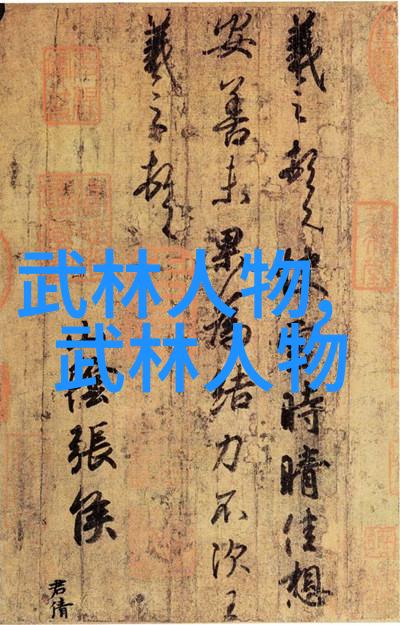 武林人物,
武林人物
羲之頓首 時晴佳想
安善未果為結力不次王
羲之頓首
陰張侯
君倩